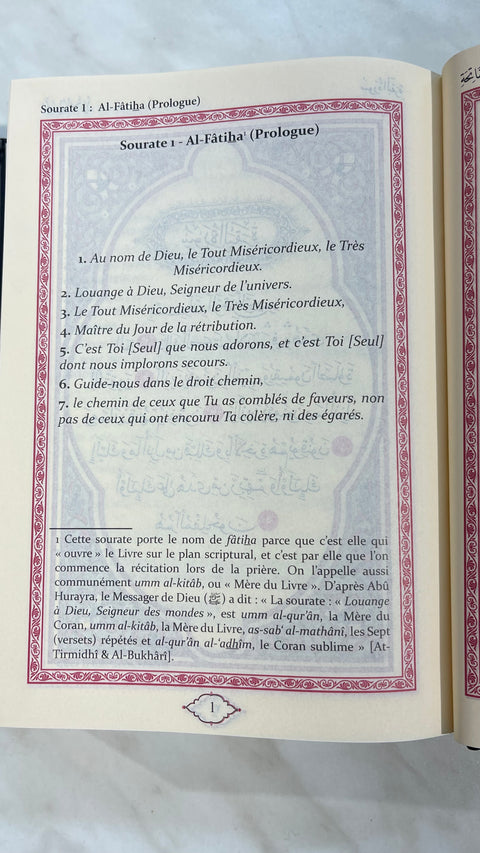 Sourate 1 : Al-Fâtiẖa (Prologue)
Sourate 1 - Al-Fâtiẖa¹ (Prologue)
1. Au nom de Dieu, le Tout Miséricordieux, le Très
Miséricordieux.
2. Louange à Dieu, Seigneur de l'univers.
3. Le Tout Miséricordieux, le Très Miséricordieux,
4. Maître du Jour de la rétribution.
5. C'est Toi [Seul] que nous adorons, et c'est Toi [Seul]
dont nous implorons secours.
6. Guide-nous dans le droit chemin,
7. le chemin de ceux que Tu as comblés de faveurs, non
pas de ceux qui ont encouru Ta colère, ni des égarés.
1 Cette sourate porte le nom de fâtiẖa parce que c'est elle qui
« ouvre » le Livre sur le plan scriptural, et c'est par elle que l'on
commence la récitation lors de la prière. On l'appelle aussi
communément umm al-kitâb, ou « Mère du Livre ». D'après Abû
Hurayra, le Messager de Dieu (ﷺ) a dit : « La sourate : « Louange
à Dieu, Seigneur des mondes », est umm al-qur'ân, la Mère du
Coran, umm al-kitâb, la Mère du Livre, as-sab' al-mathânî, les Sept
(versets) répétés et al-qur'ân al-'adhîm, le Coran sublime » [At-
Tirmidhî & Al-Bukhârî].
1